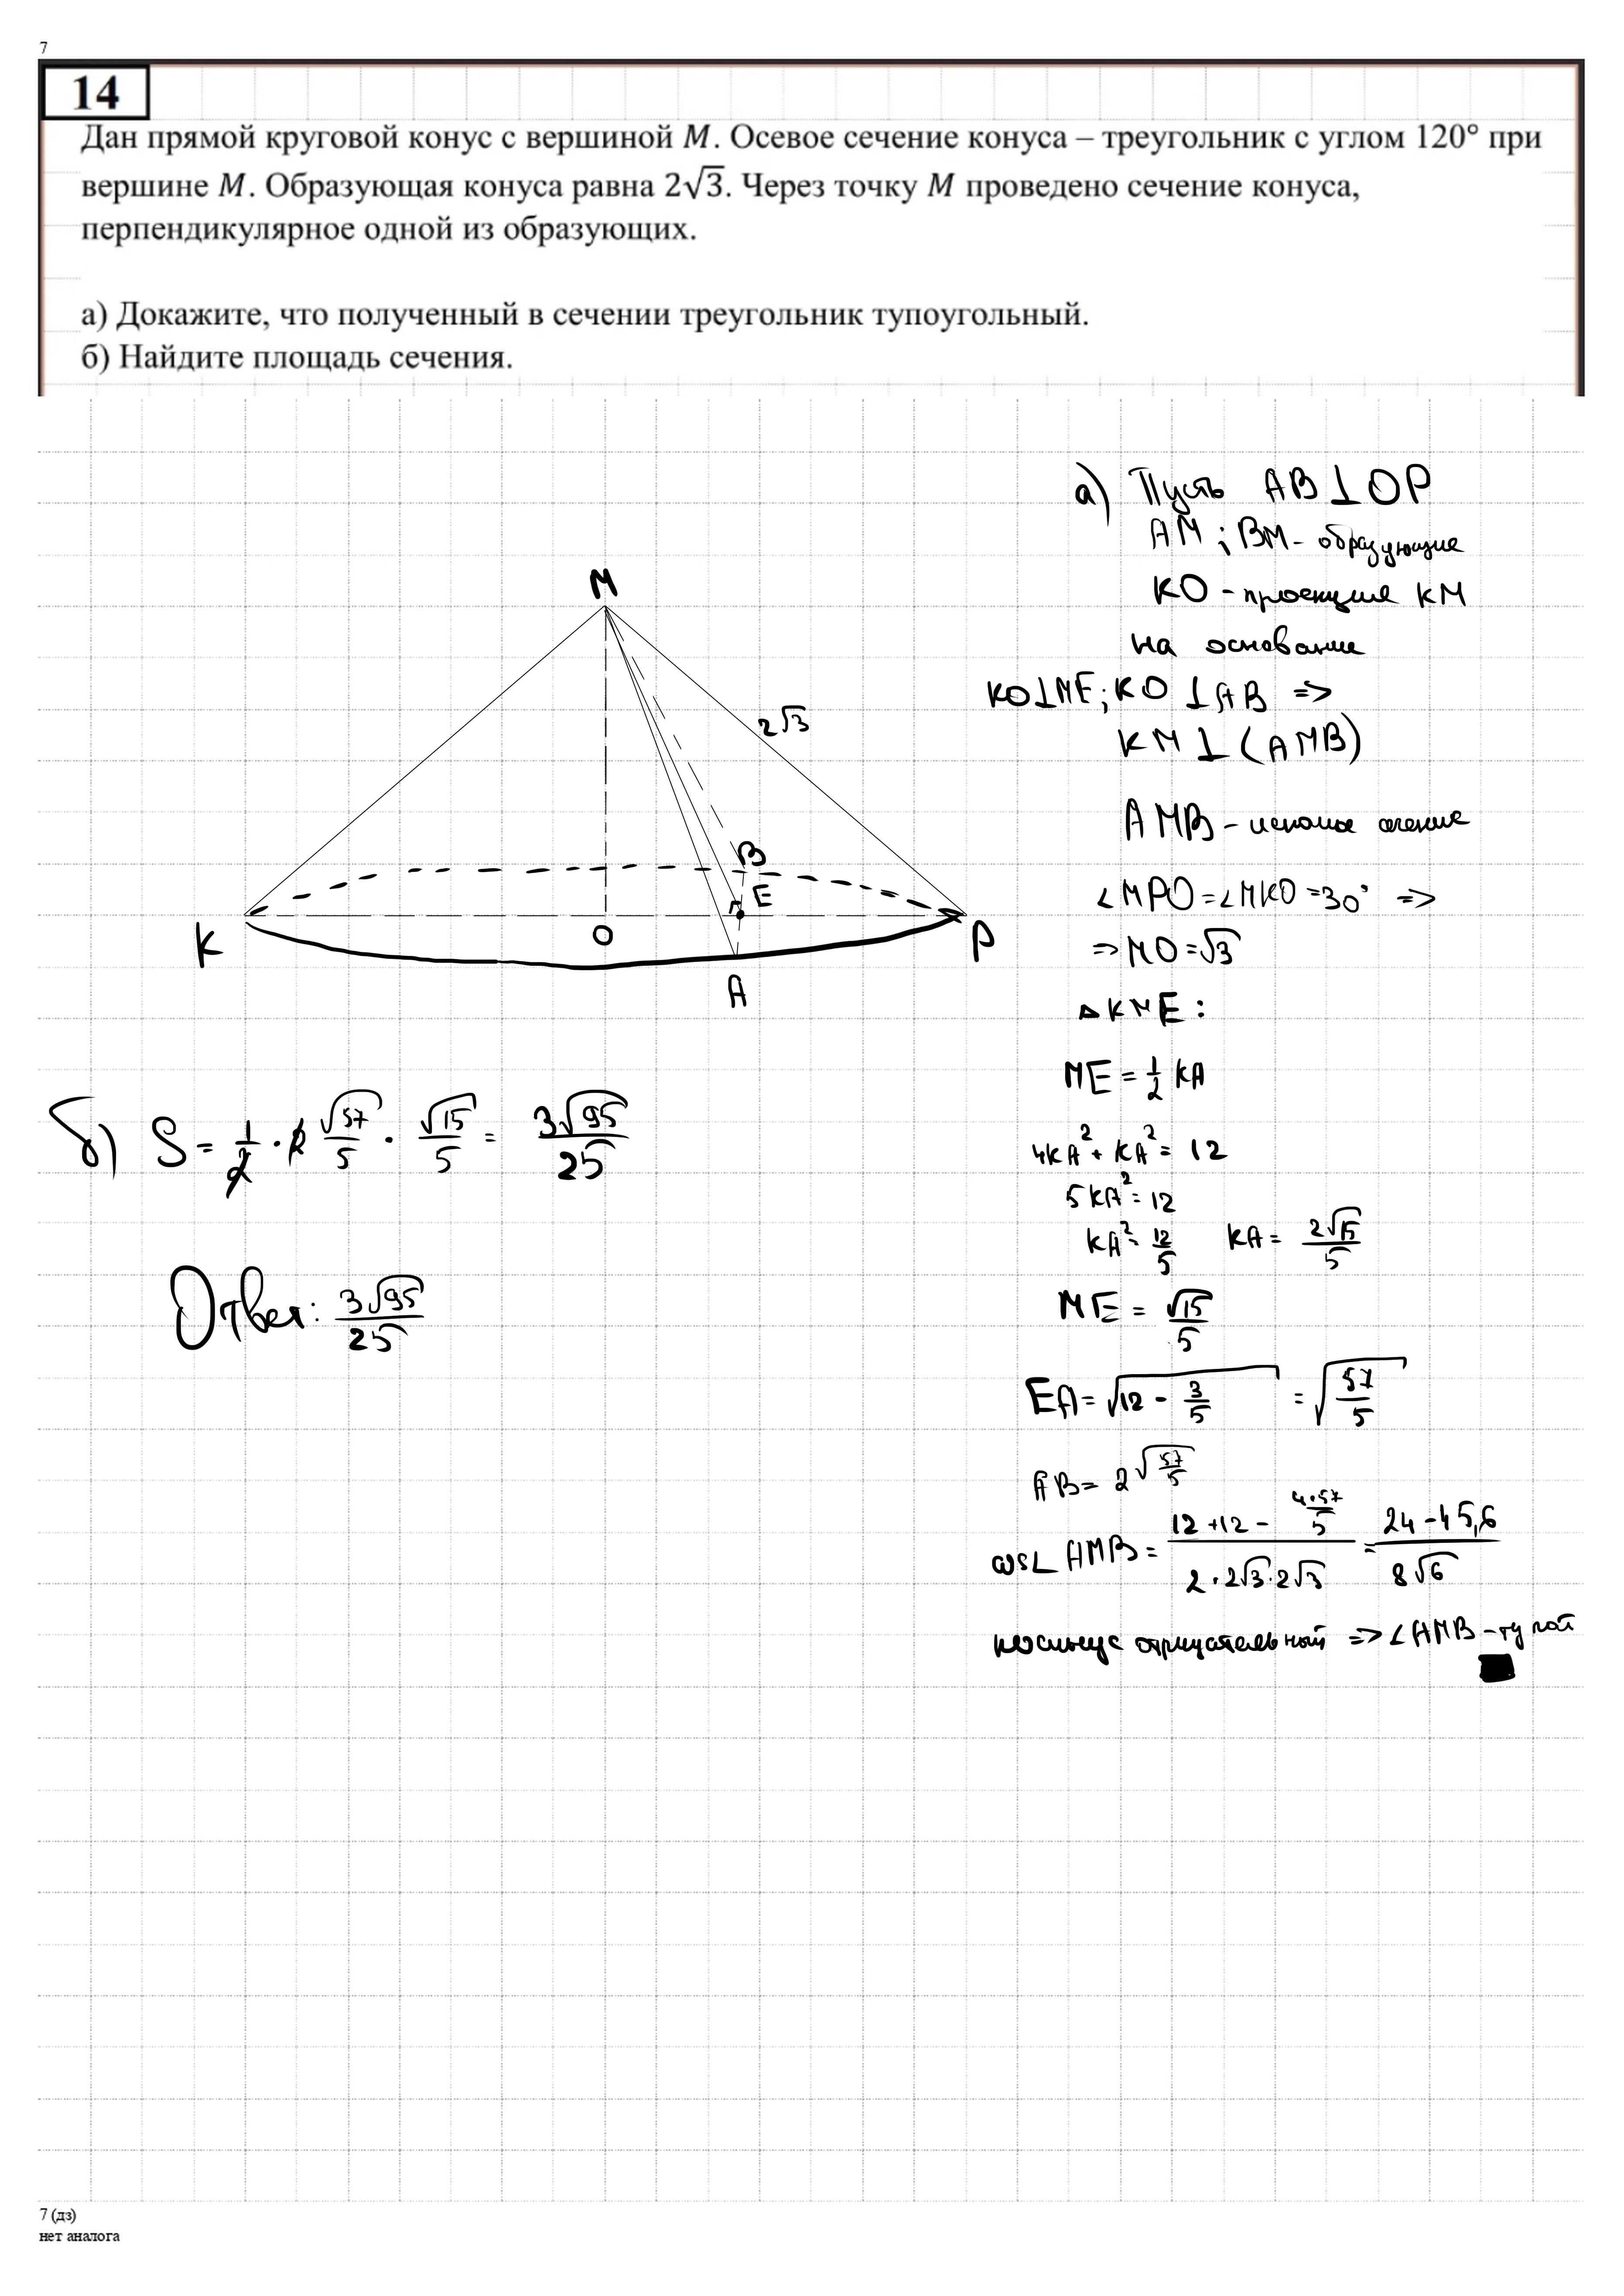 7
14
Дан прямой круговой конус с вершиной M. Осевое сечение конуса – треугольник с углом 120° при
вершине M. Образующая конуса равна 2√3. Через точку M проведено сечение конуса,
перпендикулярное одной из образующих.
а) Докажите, что полученный в сечении треугольник тупоугольный.
б) Найдите площадь сечения.
а) Пусть AB⊥OP
AM ; BM - образующие
KO - проекция KM
на основание
KO⊥ME; KO⊥AB =>
KM⊥(AMB)
AMB - искомое сечение
∠MPO=∠MKO=30° =>
=> MO=√3
△KME:
ME = 1/2 KA
4KA² + KA² = 12
5KA² = 12
KA² = 12/5 KA = 2√15/5
ME = √15/5
EA = √(12 - 3/5) = √(57/5)
AB = 2√(57/5)
cos∠AMB = (12+12 - 4·57/5)/(2·2√3·2√3) = (24-45,6)/(8√6)
косинус отрицательный => ∠AMB - тупой
M
2√3
B
E
K
O
P
A
б) S = 1/2 · 2 √57/5 · √15/5 = 3√95/25
Ответ: 3√95/25
7 (дз)
нет аналога